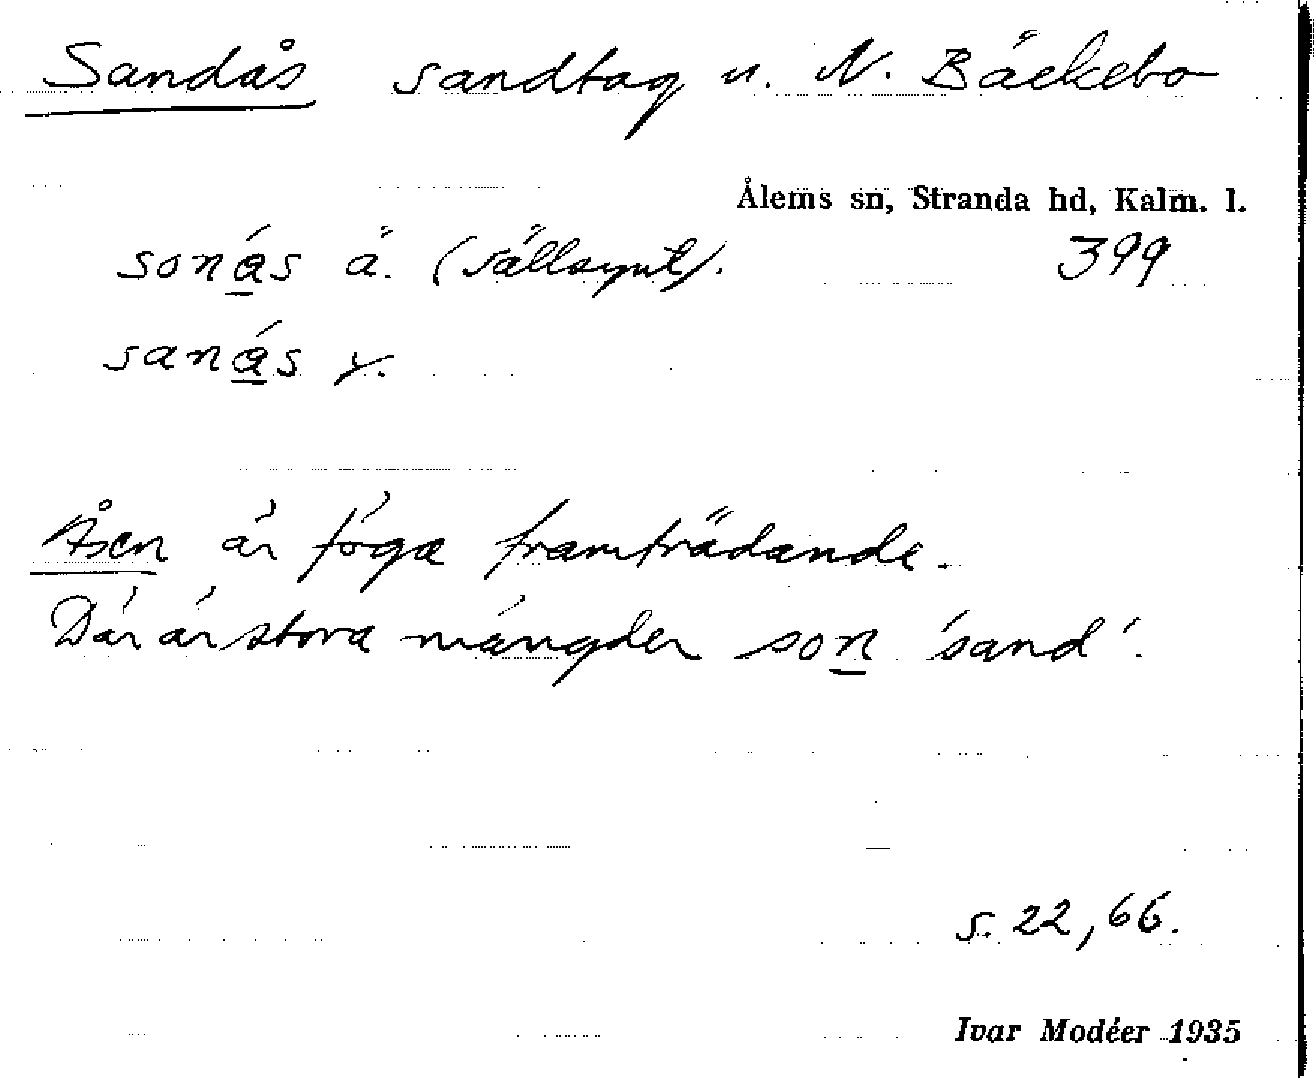 Sandås sandtag u. N. Bäckebo
Ålems sn, Stranda hd, Kalm. l.
sonás ä. (sällsynt). 399
sanás y.
Åsen är föga framträdande.
Där är stora mängder son 'sand'.
s. 22, 66.
Ivar Modéer 1935